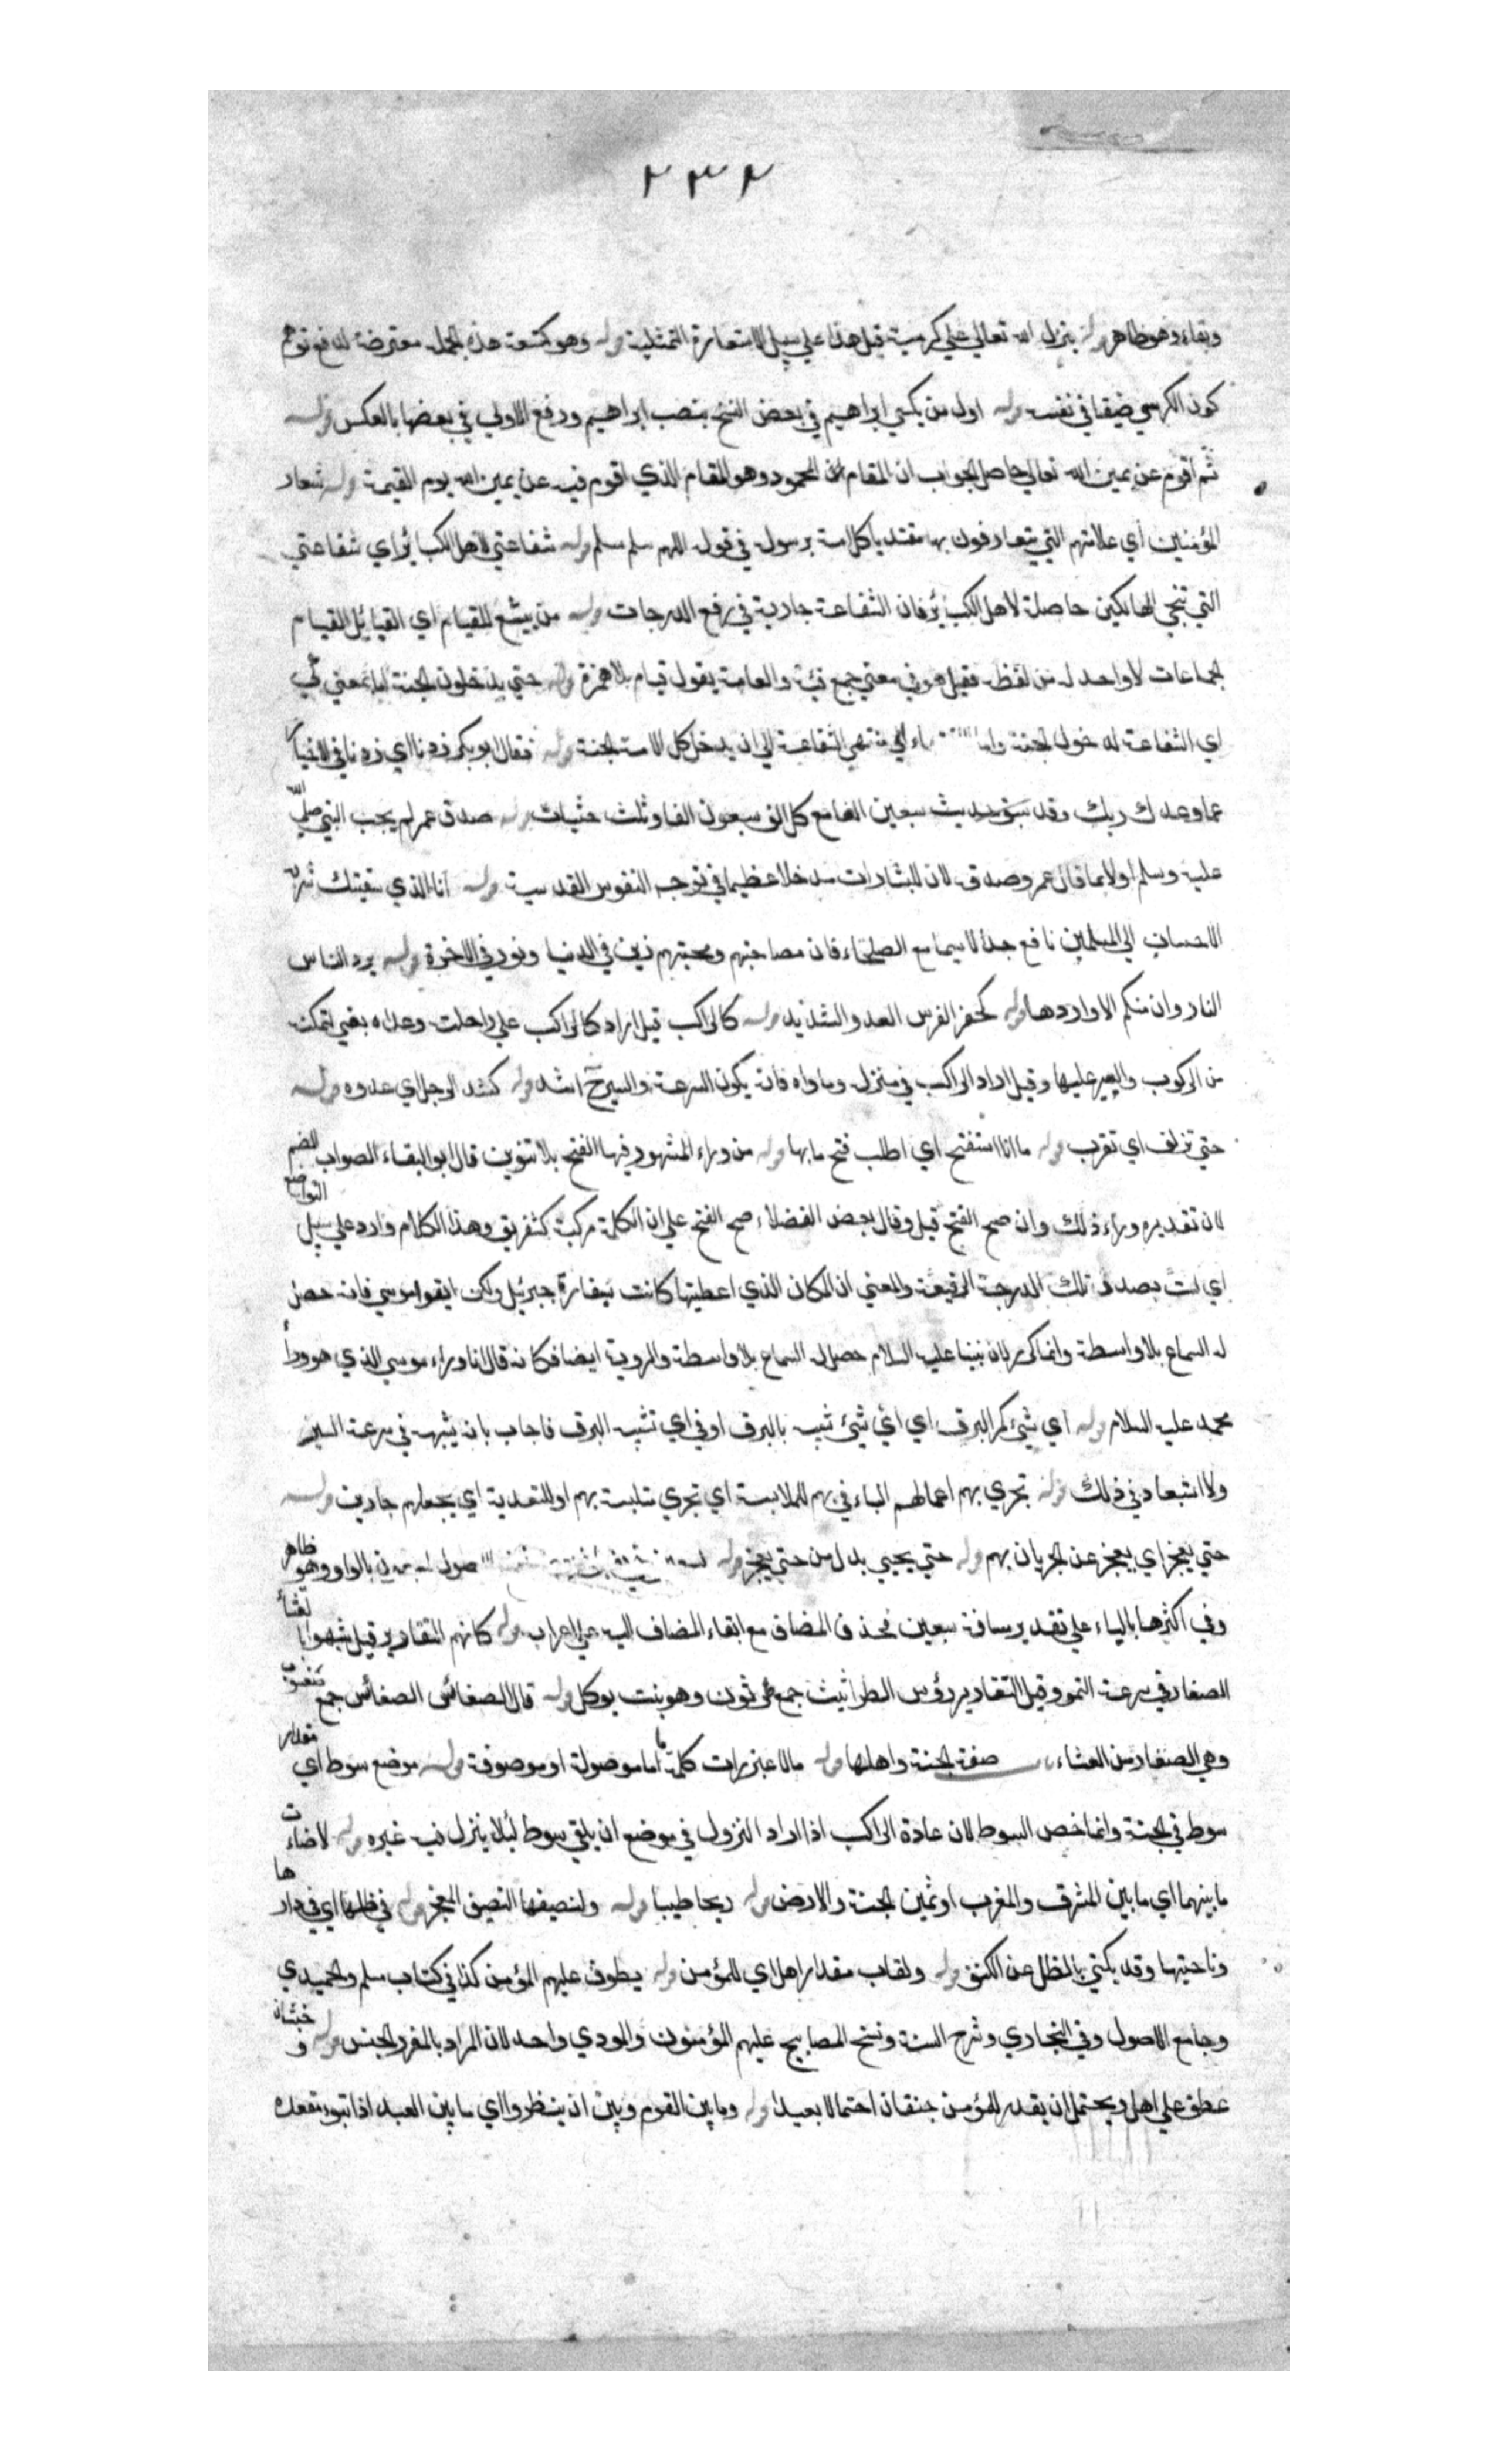 ٢٣٢
وبقاء وهو ظاهر قوله ينزل الله تعالي علي كرسيه قيل هذا علي سبيل الاستعارة التمثيلية قوله وهو كسعة هذه الجملة معترضة لدفع توهم
كون الكرسي ضيقا في نفسه قوله اول من يكسي ابراهيم في بعض النسخ بنصب ابراهيم ورفع الاولي في بعضها بالعكس قوله
ثم اقوم عن يمين الله تعالي حاصل الجواب ان المقام المحمود وهو المقام الذي اقوم فيه عن يمين الله يوم القيمة قوله شعار
المؤمنين اي علامتهم التي يتعارفون بها مقتديا كل امة برسول في قوله اللهم سلم سلم قوله شفاعتي لاهل الكبائر اي شفاعتي
التي تنجي الهالكين حاصلة لاهل الكبائر فان الشفاعة جارية في رفع الدرجات قوله من يشفع للفيام اي القبائل الفيام
الجماعات لا واحد له من لفظه فقيل هو في معني جمع فئة والعامة يقول قيام بلا همزة قوله حتي يدخلون الجنة اما بمعني كي
اي الشفاعة لدخول الجنة واما الي منتهي الشفاعة الي ان يدخل كل الامة الجنة قوله فقال ابو بكر زدنا اي زدنا في الاخبار
عما وعدك ربك وقد سبق حديث سبعين الفا مع كل الف سبعون الفا وثلث حثيات قوله صدق عمر لم يجب النبي صلي الله
عليه وسلم اولا بما قال عمر وصدق لان للبشارات مدخلا عظيما في توجه النفوس القدسية قوله انا الذي سقيتك شربة
الاحسان الي المسلمين نافع جدا لا سيما مع الصلحاء فان مصاحبتهم ومحبتهم زين في الدنيا ونور في الاخرة قوله يرد الناس
النار وان منكم الا واردها قوله كحضر الفرس العدو الشديد قوله كالراكب قيل اراد كالراكب علي راحلته وعداه بفي لتمكنه
من الركوب والسير عليها وقيل اراد الراكب في منزله وماواه فانه يكون السرعة والسير ح اشد قوله كشد الرجل اي عدوه قوله
حتي تزلف اي تقرب قوله ما انا استفتح اي اطلب فتح مابها قوله من وراء المشهور فيها الفتح بلا تنوين قال ابو البقاء الصواب الضم
لان تقديره وراء ذلك وان صح الفتح قيل وقال بعض الفضلاء صح الفتح علي ان الكلمة مركبة كشفر بغر وهذا الكلام وارد علي سبيل التواضع
اي لست بصدد تلك الدرجة الرفيعة والمعني ان المكان الذي اعطيتها كانت بسفارة جبرئيل ولكن ايتوا موسي فانه حصل
له السماع بلا واسطة وانما كرر لان نبينا عليه السلام حصل له السماع بلا واسطة والروية ايضا فكانه قال انا وراء موسي الذي هو وراء
محمد عليه السلام قوله اي شيء كمر البرق اي اي شيء شبه بالبرق او في اي تشبه البرق فاجاب بانه يشبه في سرعة السير
ولا استبعاد في ذلك قوله تجري بهم اعمالهم الباء في بهم للملابسة اي تجري متلبسة بهم او للتعدية اي يجعلهم جارين قوله
حتي يعجز اي يعجز عن الجريان بهم قوله حتي يجيي بدل من حتي يعجز قوله بالواو وهو ظاهر
وفي اكثرها بالياء علي تقدير مسافة سبعين فحذف المضاف مع ابقاء المضاف اليه علي اعراب قوله كانهم الثعارير قيل شبهوا بالقثاء
الصغار في سرعة النمو وقيل الثعارير رؤس الطراثيث جمع طرثوث وهو نبت يوكل قوله قال الضغابيس الضغابيس جمع ضغبوس
وهي الصغار من القثاء صفة الجنة واهلها قوله ما لا عين رات كلمة ما اما موصولة او موصوفة قوله موضع سوط اي مقدار
سوط في الجنة وانما خص السوط لان عادة الراكب اذا اراد النزول في موضع ان يلقي سوطه لئلا ينزل فيه غيره قوله لاضاءت
ما بينهما اي ما بين المشرق والمغرب او بين الجنة والارض قوله ريحا طيبا قوله ولنصيفها النصيف المعجر قوله في ظلها اي في دارها
وناحيتها وقد يكني بالظل عن الكنف قوله ولقاب مقدار اهل اي للمؤمن قوله يطوف عليهم المؤمن كذا في كتاب مسلم والحميدي
وجامع الاصول وفي البخاري وشرح السنة ونسخ المصابيح عليهم المؤمنون والمودي واحد لان المراد بالمفرد الجنس قوله وجنتان
عطف علي اهل ويحتمل ان يقدر للمؤمن جنتان احتمالا بعيدا قوله وما بين القوم وبين ان ينظروا اي ما بين العبد اذا تبوء مقعده